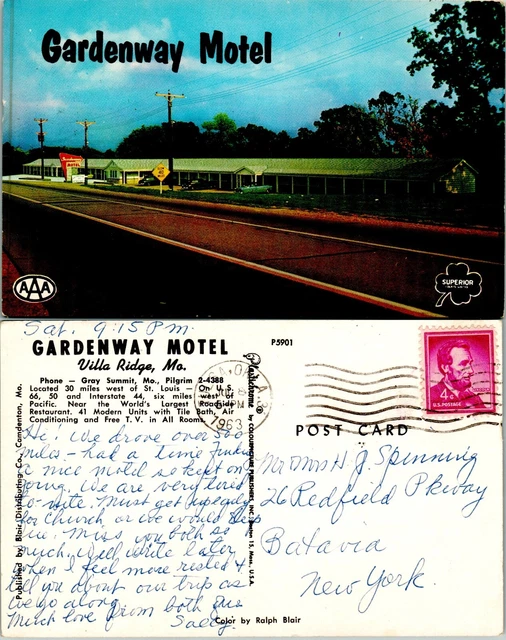 Gardenway Motel
AAA
SUPERIOR
Sat. 9:15 Pm.
GARDENWAY MOTEL
Villa Ridge, Mo.
Phone — Gray Summit, Mo., Pilgrim 2-4388
Located 30 miles west of St. Louis — On U. S.
66, 50 and Interstate 44, six miles west of
Pacific. Near the World's Largest Roadside
Restaurant. 41 Modern Units with Tile Bath, Air
Conditioning and Free T. V. in All Rooms.
Hi! We drove over 500
miles - had a time finding
a nice motel so kept on
going. We are very tired
to nite. Must get up early
for Church or we would sleep
late. Miss you both so
much. Will write later
when I feel more rested &
tell you about our trip as
we go along.
Much love from both of us
Sally
Published by Blair Distributing Co., Camdenton, Mo.
P5901
1963
Plastichrome ® by COLOURPICTURE PUBLISHERS, INC., Boston 15, Mass., U.S.A.
4¢
U.S. POSTAGE
POST CARD
Mr & Mrs H. J. Spinning
26 Redfield Pkway
Batavia
New York.
Color by Ralph Blair